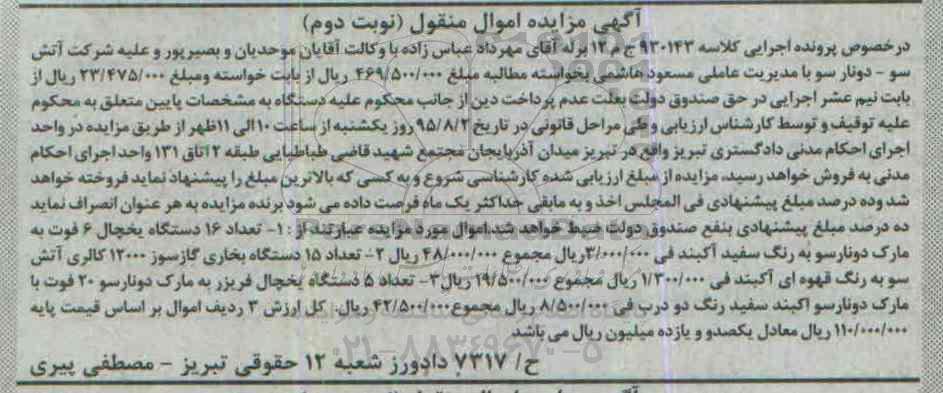 آگهی مزایده اموال منقول (نوبت دوم)
درخصوص پرونده اجرایی کلاسه ۹۳۰۱۴۳ ج م ۱۲ برله آقای مهرداد عباس زاده با وکالت آقایان موحدیان و بصیرپور و علیه شرکت آتش
سو - دونار سو با مدیریت عاملی مسعود هاشمی بخواسته مطالبه مبلغ ۴۶۹/۵۰۰/۰۰۰ ریال از بابت خواسته ومبلغ ۲۳/۴۷۵/۰۰۰ ریال از
بابت نیم عشر اجرایی در حق صندوق دولت بعلت عدم پرداخت دین از جانب محکوم علیه دستگاه به مشخصات پایین متعلق به محکوم
علیه توقیف و توسط کارشناس ارزیابی و طی مراحل قانونی در تاریخ ۹۵/۸/۲ روز یکشنبه از ساعت ۱۰ الی ۱۱ظهر از طریق مزایده در واحد
اجرای احکام مدنی دادگستری تبریز واقع در تبریز میدان آذربایجان مجتمع شهید قاضی طباطبایی طبقه ۲ اتاق ۱۳۱ واحد اجرای احکام
مدنی به فروش خواهد رسید، مزایده از مبلغ ارزیابی شده کارشناسی شروع و به کسی که بالاترین مبلغ را پیشنهاد نماید فروخته خواهد
شد وده درصد مبلغ پیشنهادی فی المجلس اخذ و به مابقی حداکثر یک ماه فرصت داده می شود برنده مزایده به هر عنوان انصراف نماید
ده درصد مبلغ پیشنهادی بنفع صندوق دولت ضبط خواهد شد.اموال مورد مزایده عبارتند از : ۱- تعداد ۱۶ دستگاه یخچال ۶ فوت به
مارک دونارسو به رنگ سفید آکبند فی ۳/۰۰۰/۰۰۰ریال مجموع ۴۸/۰۰۰/۰۰۰ ریال ۲- تعداد ۱۵ دستگاه بخاری گازسوز ۱۲۰۰۰ کالری آتش
سو به رنگ قهوه ای آکبند فی ۱/۳۰۰/۰۰۰ ریال مجموع ۱۹/۵۰۰/۰۰۰ ریال۳- تعداد ۵ دستگاه یخچال فریزر به مارک دونارسو ۲۰ فوت با
مارک دونارسو اکبند سفید رنگ دو درب فی ۸/۵۰۰/۰۰۰ ریال مجموع ۴۲/۵۰۰/۰۰۰ ریال. کل ارزش ۳ ردیف اموال بر اساس قیمت پایه
۱۱۰/۰۰۰/۰۰۰ ریال معادل یکصدو و یازده میلیون ریال می باشد
ح/ ۷۳۱۷ دادورز شعبه ۱۲ حقوقی تبریز - مصطفی پیری
۰۲۱-۸۸۳۴۹۶۷۰-۵